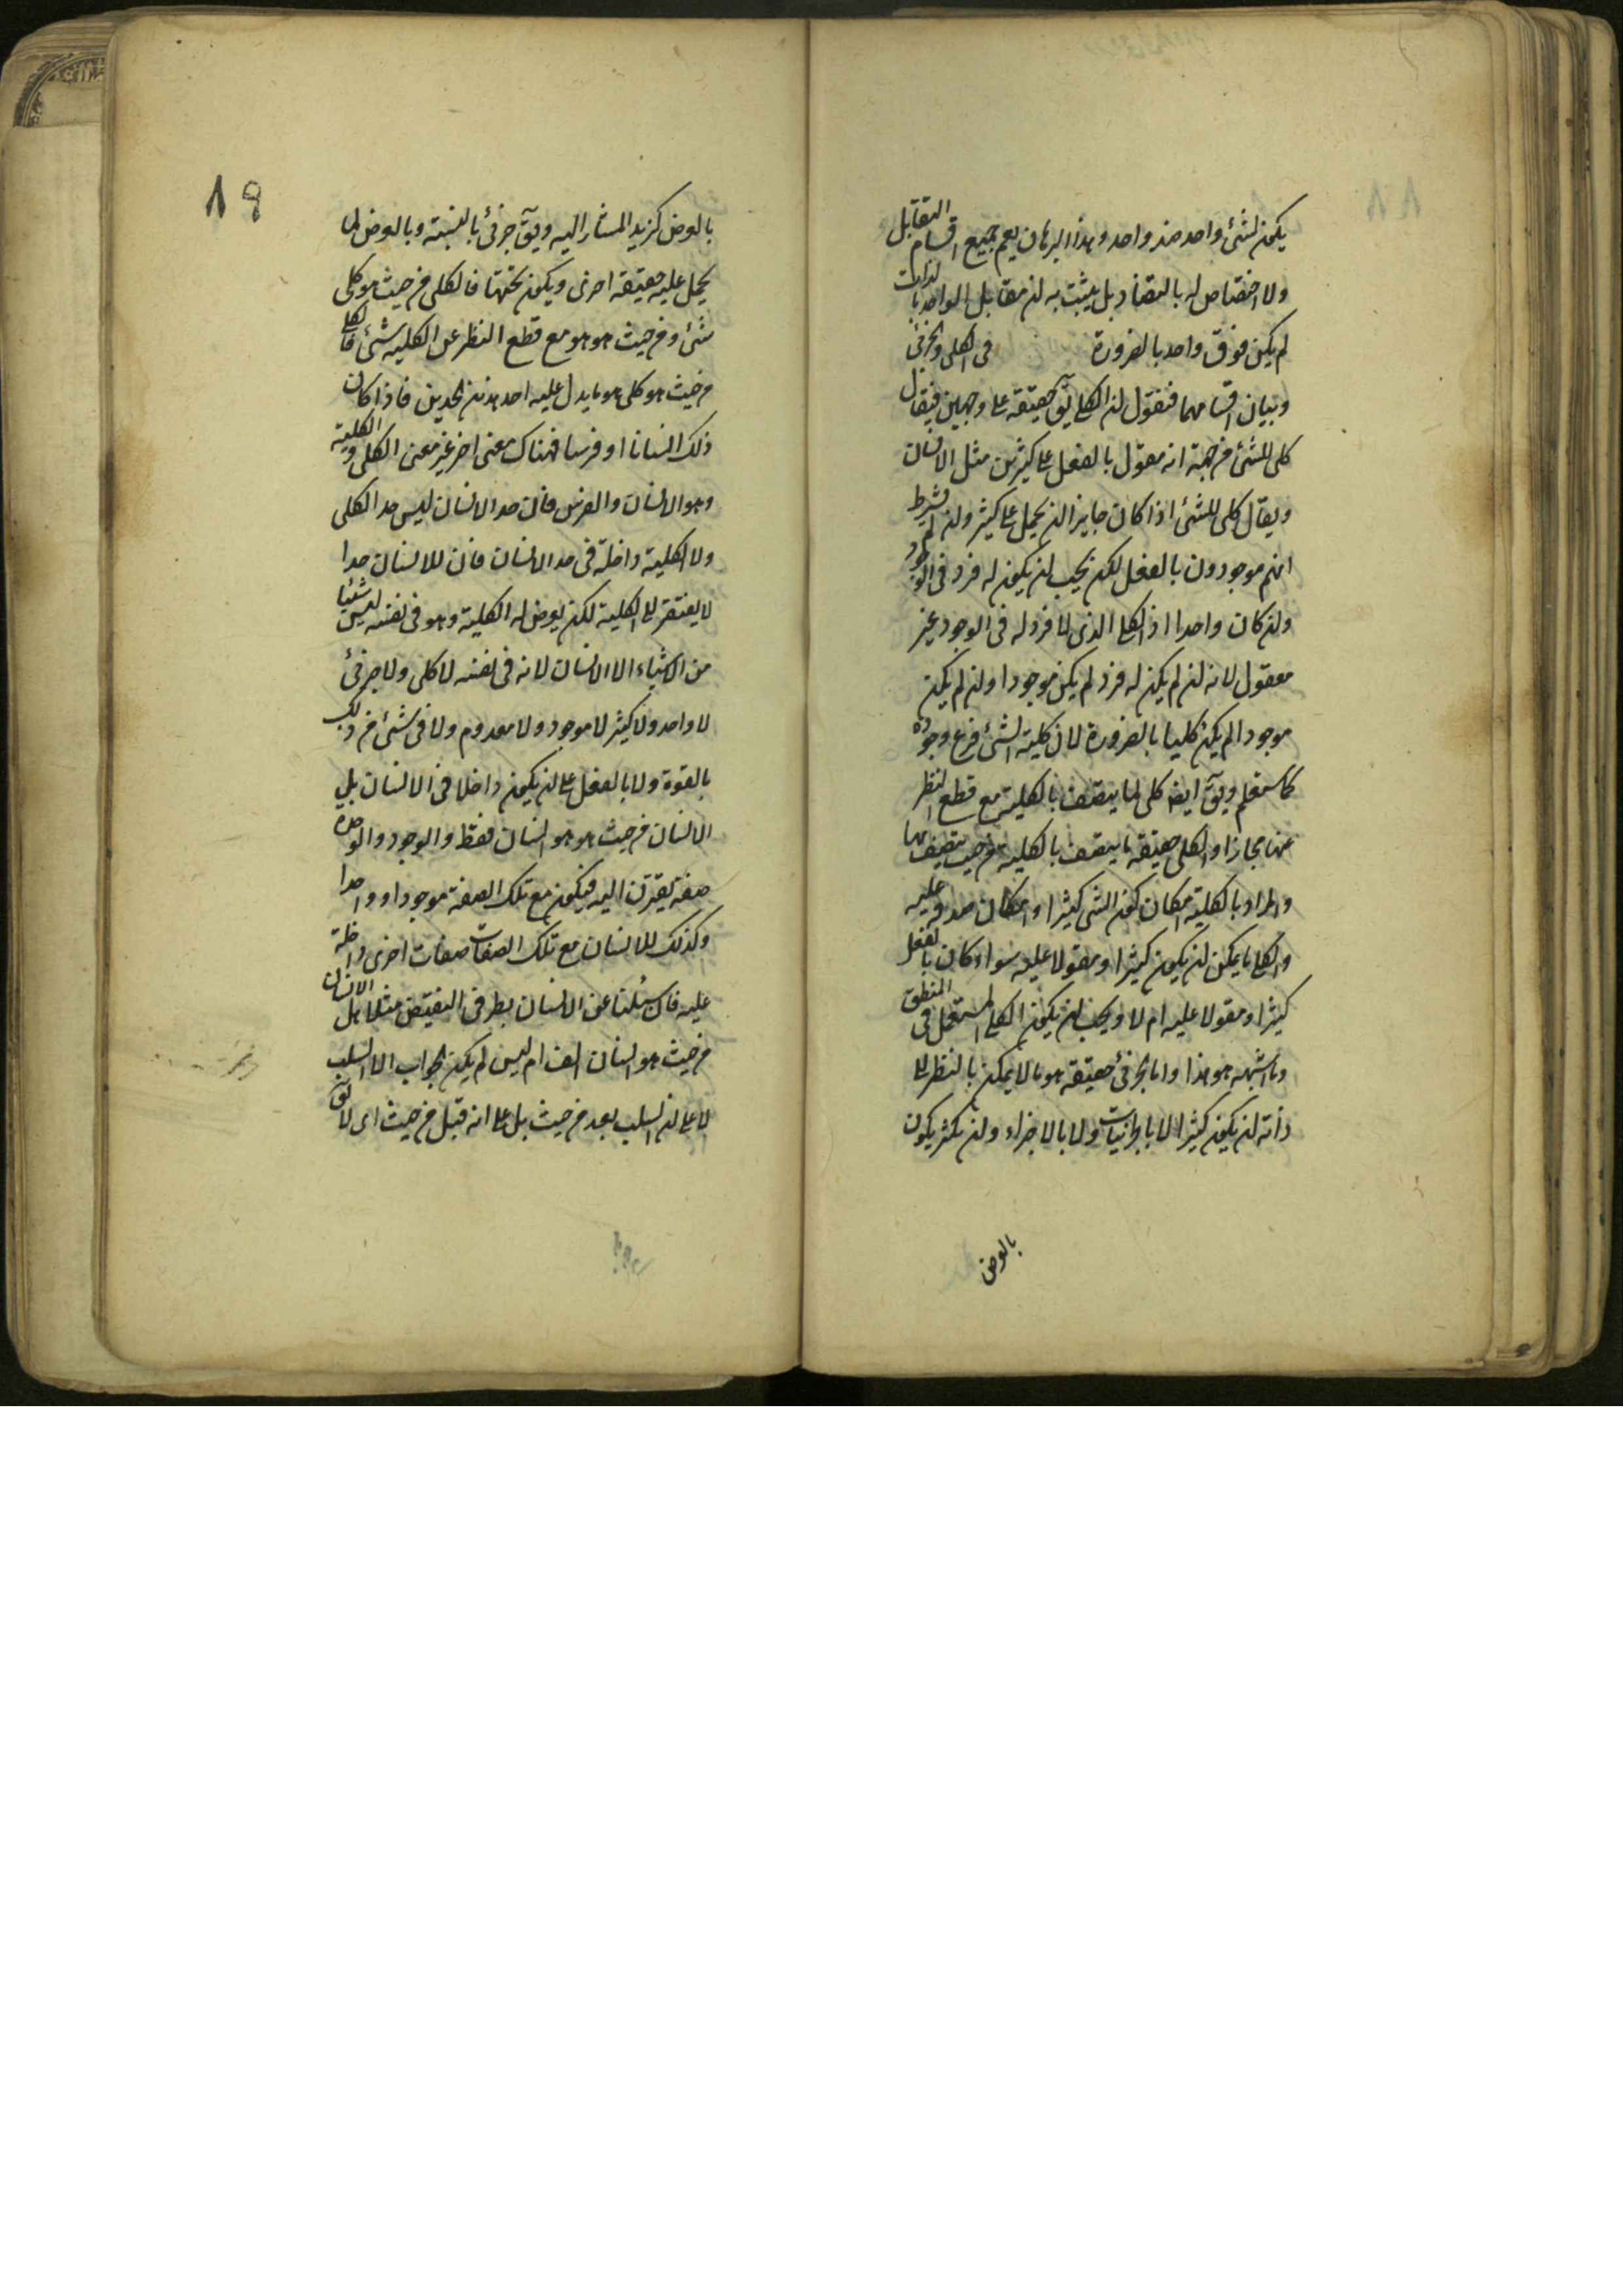 يكون لشئ واحد ضد واحد وهذا البرهان يعم جميع اقسام التقابل
ولا اختصاص له بالتضاد بل يثبت به ان مقابل الواحد بالذات
لم يكن فوق واحد بالضرورة في الكلى والجزئى
وبيان اقسامهما فنقول ان الكلى يق حقيقة على وجهين فيقال
كلى للشئ من جهة انه مقول بالفعل على كثيرين مثل الانسان
ويقال كلى للشئ اذا كان جايزا ان يحمل على كثير وان لم يشرط
انهم موجودون بالفعل لكن يجب ان يكون له فرد فى الوجود
وان كان واحدا اذ الكلى الذى لا فرد له فى الوجود غير
معقول لانه ان لم يكن له فرد لم يكن موجودا وان لم يكن
موجودا لم يكن كليا بالضرورة لان كلية الشئ فرع وجوده
كما ستعلم ويق ايضا كلى لما يتصف بالكلية مع قطع النظر
عنها مجازا والكلى حقيقة ما يتصف بالكلية من حيث يتصف بها
والمراد بالكلية امكان كون الشئ كثيرا وامكان صدقه عليه
والكلى ما يمكن ان يكون كثيرا ومقولا عليه سواء كان بالفعل
كثيرا ومقولا عليه ام لا ويجب ان يكون الكلى المستعمل فى المنطق
وما اشبهه هو هذا واما الجزئى حقيقة هو ما لا يمكن بالنظر الى
ذاته ان يكون كثيرا لا بالجزئيات ولا بالاجزاء وان تكثر يكون
بالعرض
١٩
بالعرض كزيد المشار اليه ويق جزئى بالنسبة وبالعرض لما
يحمل عليه حقيقة اخرى ويكون تحتها فالكلى من حيث هو كلى
شئ ومن حيث هو هو مع قطع النظر عن الكلية شئ فالكلى
من حيث هو كلى هو ما يدل عليه احد هذين الحدين فاذا كان
ذلك انسانا او فرسا فهناك معنى اخر غير معنى الكلى والكلية
وهو الانسان والفرس فان حد الانسان ليس حد الكلى
ولا الكلية داخلة فى حد الانسان فان للانسان حدا
لا يفتقر الى الكلية لكن يعرض له الكلية وهو فى نفسه ليس شيئا
من الاشياء الا الانسان لانه فى نفسه لا كلى ولا جزئى
لا واحد ولا كثير لا موجود ولا معدوم ولا فى شئ من ذلك
بالقوة ولا بالفعل على ان يكون داخلا فى الانسان بل
الانسان من حيث هو هو انسان فقط والوجود والوحدة
صفة يقترن اليه فيكون مع تلك الصفة موجودا وواحدا
وكذلك للانسان مع تلك الصفات صفات اخرى داخلة
عليه فان سئلنا عن الانسان بطرفى النقيض مثلا هل الانسان
من حيث هو انسان الف ام ليس لم يكن الجواب الا السلب
لا على ان السلب بعد من حيث بل على انه قبل من حيث اى لا